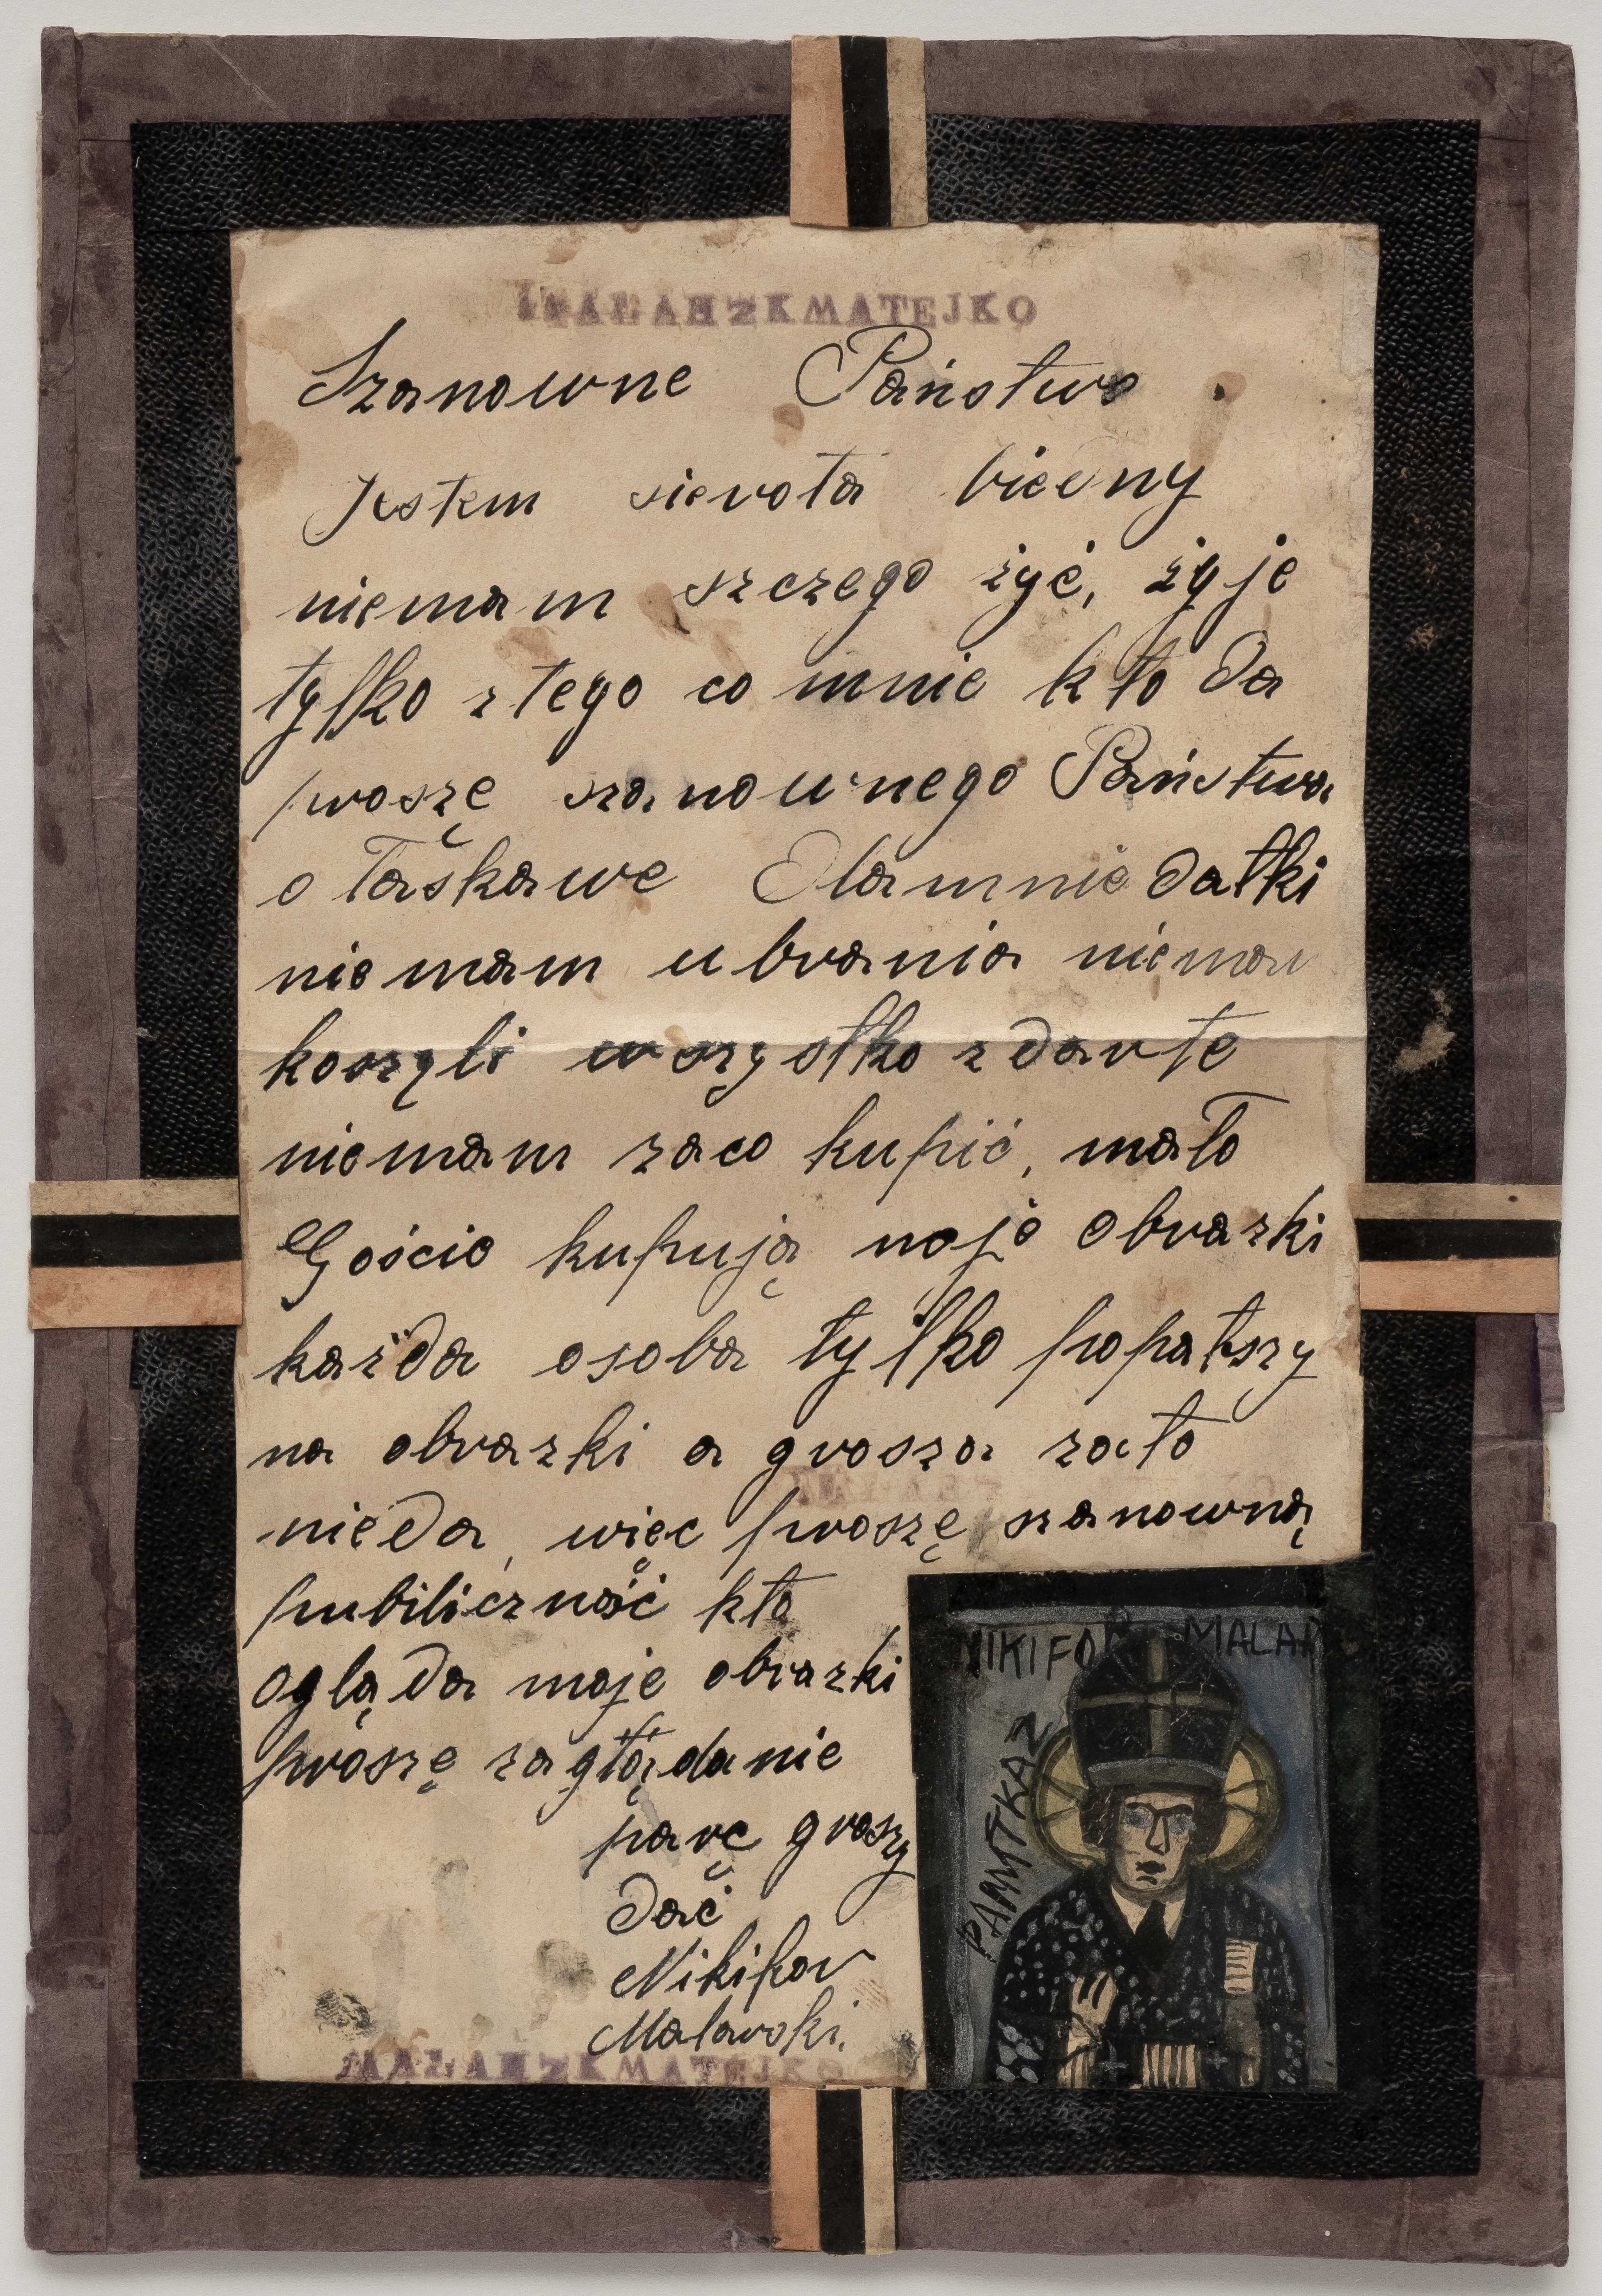 MATEJKO
Szanowne Państwo.
Jestem sierota biedny
niemam szczego żyć, żyje
tylko z tego co mnie kto da
proszę szanownego Państwa
o łaskawe dla mnie datki
niemam ubrania niemam
korzyli wszystko zdarte
niemam zaco kupić, mało
Goście kupują moje obrazki
każda osoba tylko popatszy
na obrazki a grosza zato
nieda, więc proszę szanowną
pubiliczność kto
ogląda moje obrazki
proszę zaglądanie
parę groszy
dać
Nikifor
Malarski.
MATEJKO
NIKIFOR MALAR
PAMTKAZ